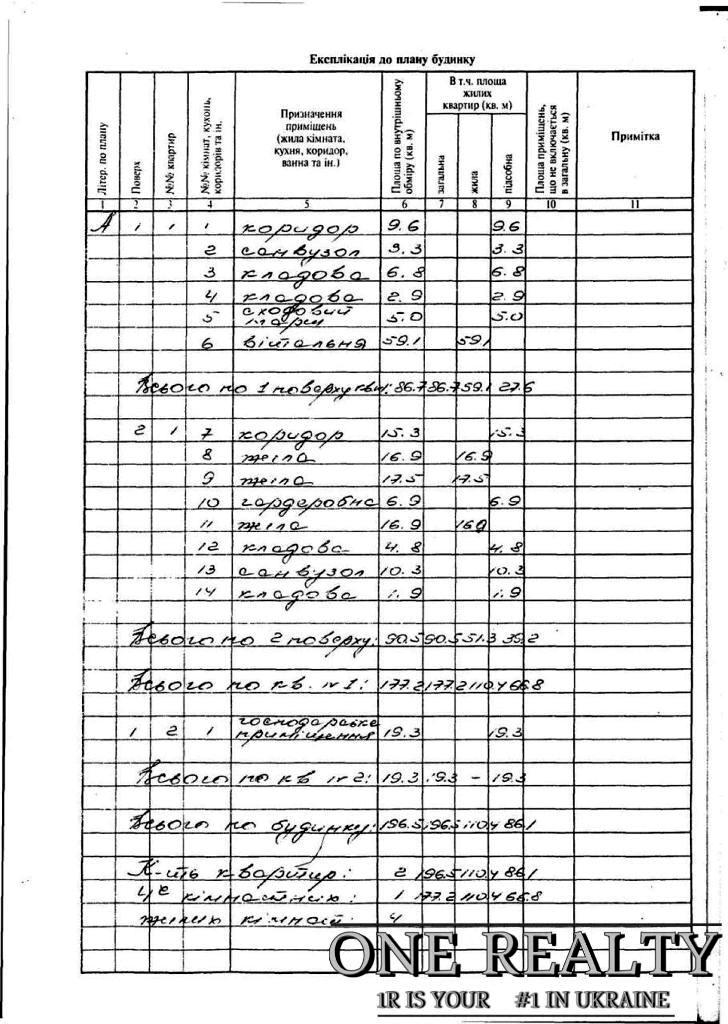 Експлікація до плану будинку
Літер. по плану
Поверх
№№ квартир
№№ кімнат, кухонь, коридорів та ін.
Призначення приміщень (жила кімната, кухня, коридор, ванна та ін.)
Площа по внутрішньому обміру (кв. м)
В т.ч. площа жилих квартир (кв. м)
загальна
жила
підсобна
Площа приміщень, що не включається в загальну (кв. м)
Примітка
1 2 3 4 5 6 7 8 9 10 11
А 1 1 1 коридор 9.6 9.6
2 санвузол 3.3 3.3
3 кладова 6.8 6.8
4 кладова 2.9 2.9
5 сходовий марш 5.0 5.0
6 вітальня 59.1 59.1
Всього по 1 поверху кв.1: 86.7 86.7 59.1 27.6
2 1 7 коридор 15.3 15.3
8 жила 16.9 16.9
9 жила 17.5 17.5
10 гардеробна 6.9 6.9
11 жила 16.9 16.9
12 кладова 4.8 4.8
13 санвузол 10.3 10.3
14 кладова 1.9 1.9
Всього по 2 поверху: 90.5 90.5 51.3 39.2
Всього по кв. №1: 177.2 177.2 110.4 66.8
1 2 1 господарське приміщення 19.3 19.3
Всього по кв №2: 19.3 19.3 - 19.3
Всього по будинку: 196.5 196.5 110.4 86.1
К-ить квартир: 2 196.5 110.4 86.1
4х кімнатних: 1 177.2 110.4 66.8
жилих кімнат: 4
ONE REALTY
1R IS YOUR #1 IN UKRAINE